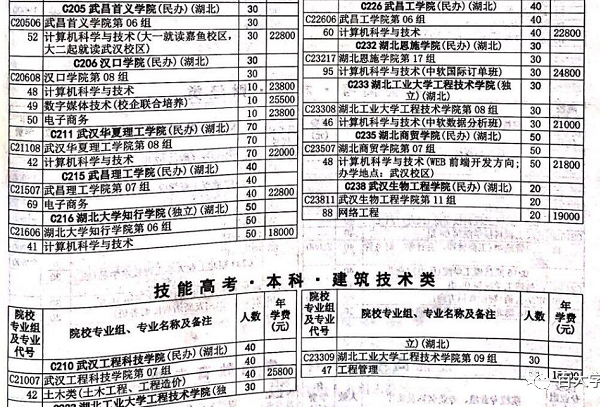 C205 武昌首义学院(民办)(湖北) 30
C20506 武昌首义学院第 06 组 30
52 计算机科学与技术(大一就读嘉鱼校区, 30 22800
大二起就读武汉校区)
C206 汉口学院(民办)(湖北) 30
C20608 汉口学院第 08 组 30
48 计算机科学与技术 10 23800
49 数字媒体技术(校企联合培养) 10 25500
50 电子商务 10 23800
C211 武汉华夏理工学院(民办)(湖北) 70
C21108 武汉华夏理工学院第 08 组 70
42 计算机科学与技术 70 22000
C215 武昌理工学院(民办)(湖北) 40
C21507 武昌理工学院第 07 组 40
69 电子商务 40 22800
C216 湖北大学知行学院(独立)(湖北) 50
C21606 湖北大学知行学院第 06 组 50
41 计算机科学与技术 50 18000
C226 武昌工学院(民办)(湖北) 40
C22606 武昌工学院第 06 组 40
60 计算机科学与技术 40 22800
C232 湖北恩施学院(民办)(湖北) 30
C23217 湖北恩施学院第 17 组 30
95 计算机科学与技术(中软国际订单班) 30 24800
C233 湖北工业大学工程技术学院(独
立)(湖北) 30
C23308 湖北工业大学工程技术学院第 08 组 30
46 计算机科学与技术(中软数据分析班) 30 21000
C235 湖北商贸学院(民办)(湖北) 50
C23507 湖北商贸学院第 07 组 50
48 计算机科学与技术(WEB 前端开发方向; 50 21800
办学地点:武汉校区)
C238 武汉生物工程学院(民办)(湖北) 20
C23811 武汉生物工程学院第 11 组 20
88 网络工程 20 19000
技能高考·本科·建筑技术类
院校专业组及专业代号 院校专业组、专业名称及备注 人数 年学费(元)
C210 武汉工程科技学院(民办)(湖北) 40
C21007 武汉工程科技学院第 07 组 40
42 土木类(土木工程、工程造价) 40 25800
湖北工业大学工程技术学院(独 30
院校专业组及专业代号 院校专业组、专业名称及备注 人数 年学费(元)
立)(湖北)
C23309 湖北工业大学工程技术学院第 09 组 30
47 工程管理 30